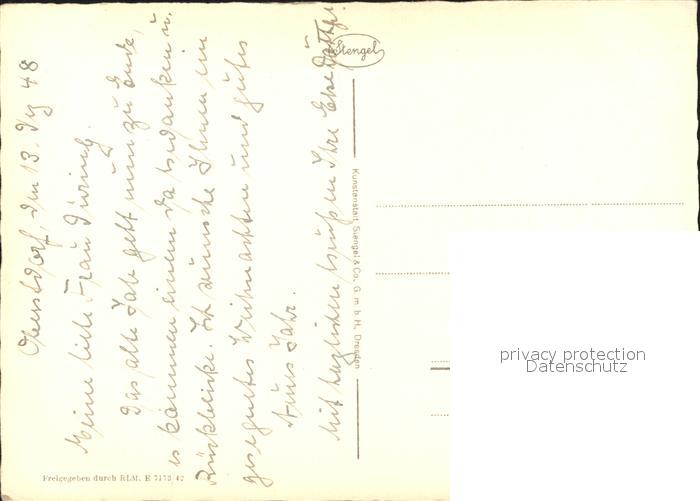 Oberstdorf, den 13. Dez 48
Meine liebe Frau
Das alte Jahr geht nun zu Ende,
es kommen einem da Gedanken u.
Rückblicke. Ich wünsche Ihnen ein
gesegnetes Weihnachten und gutes
Neues Jahr.
Mit herzlichen Grüßen Ihre
Stengel
Kunstanstalt Stengel & Co., G. m. b. H., Dresden
Freigegeben durch RLM. E 7173/42
privacy protection
Datenschutz